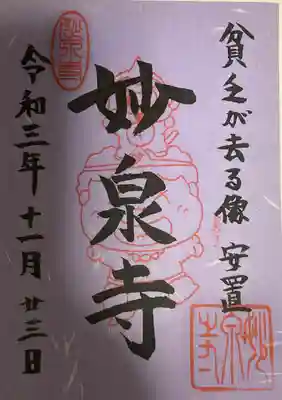 貧乏が去る像 安置
妙泉寺
令和三年 十一月 廿三日
妙泉寺